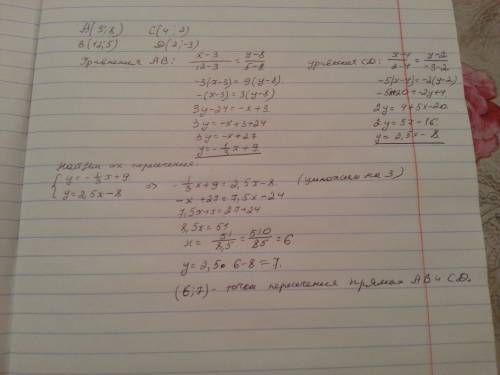 A(3; 8) C(4; 2)
B(12; 5) D(2; -3)
Уравнения AB: x-3/12-3 = y-8/5-8
-3(x-3) = 9(y-8)
-(x-3) = 3(y-8)
3y-24 = -x+3
3y = -x+3+24
3y = -x+27
y = -1/3x+9
уравнения CD: x-4/2-4 = y-2/-3-2
-5(x-4) = -2(y-2)
-5x+20 = -2y+4
2y = 4+5x-20
2y = 5x-16
y = 2,5x-8
найдем их пересечения:
{y = -1/3x+9
y = 2,5x-8
=> -1/3x+9 = 2,5x-8 (умножаем на 3)
-x+27 = 7,5x-24
7,5x+x = 27+24
8,5x = 51
x = 51/8,5 = 510/85 = 6
y = 2,5·6-8 = 7.
(6; 7) - точка пересечения прямых AB и CD.